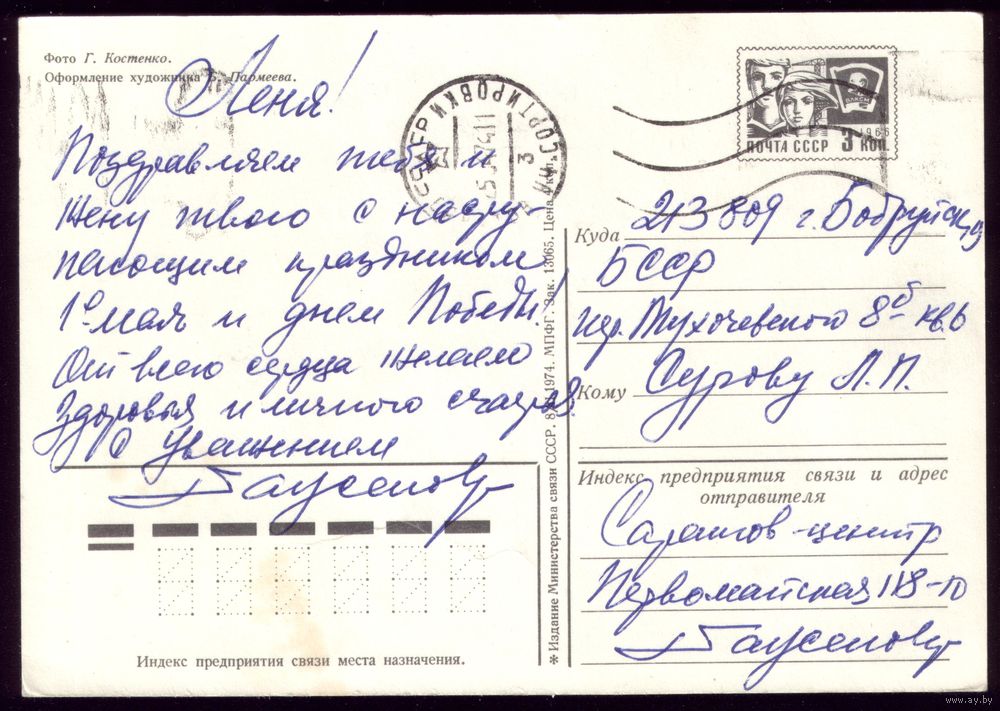 Фото Г. Костенко.
Оформление художника Б. Пармеева.
Леня!
Поздравляем тебя и
жену твого с насту-
пающим праздником
1е мая и днем Победы!
От всего сердца желаем
здоровья и личного счастья.
С уважением
Индекс предприятия связи места назначения.
* Издание Министерства связи СССР. 1974. МПФГ. Зак. 13065. Цена 4 коп.
СОРТИРОВКИ
ВЛКСМ
1966
ПОЧТА СССР 3 КОП.
Куда 213809 г. Бобруйск,
БССР
пер. Тухочевского 8б кв. 6
Кому Сурову Л. П.
Индекс предприятия связи и адрес
отправителя
Саратов-центр
Первомайская 118-10
www.ay.by